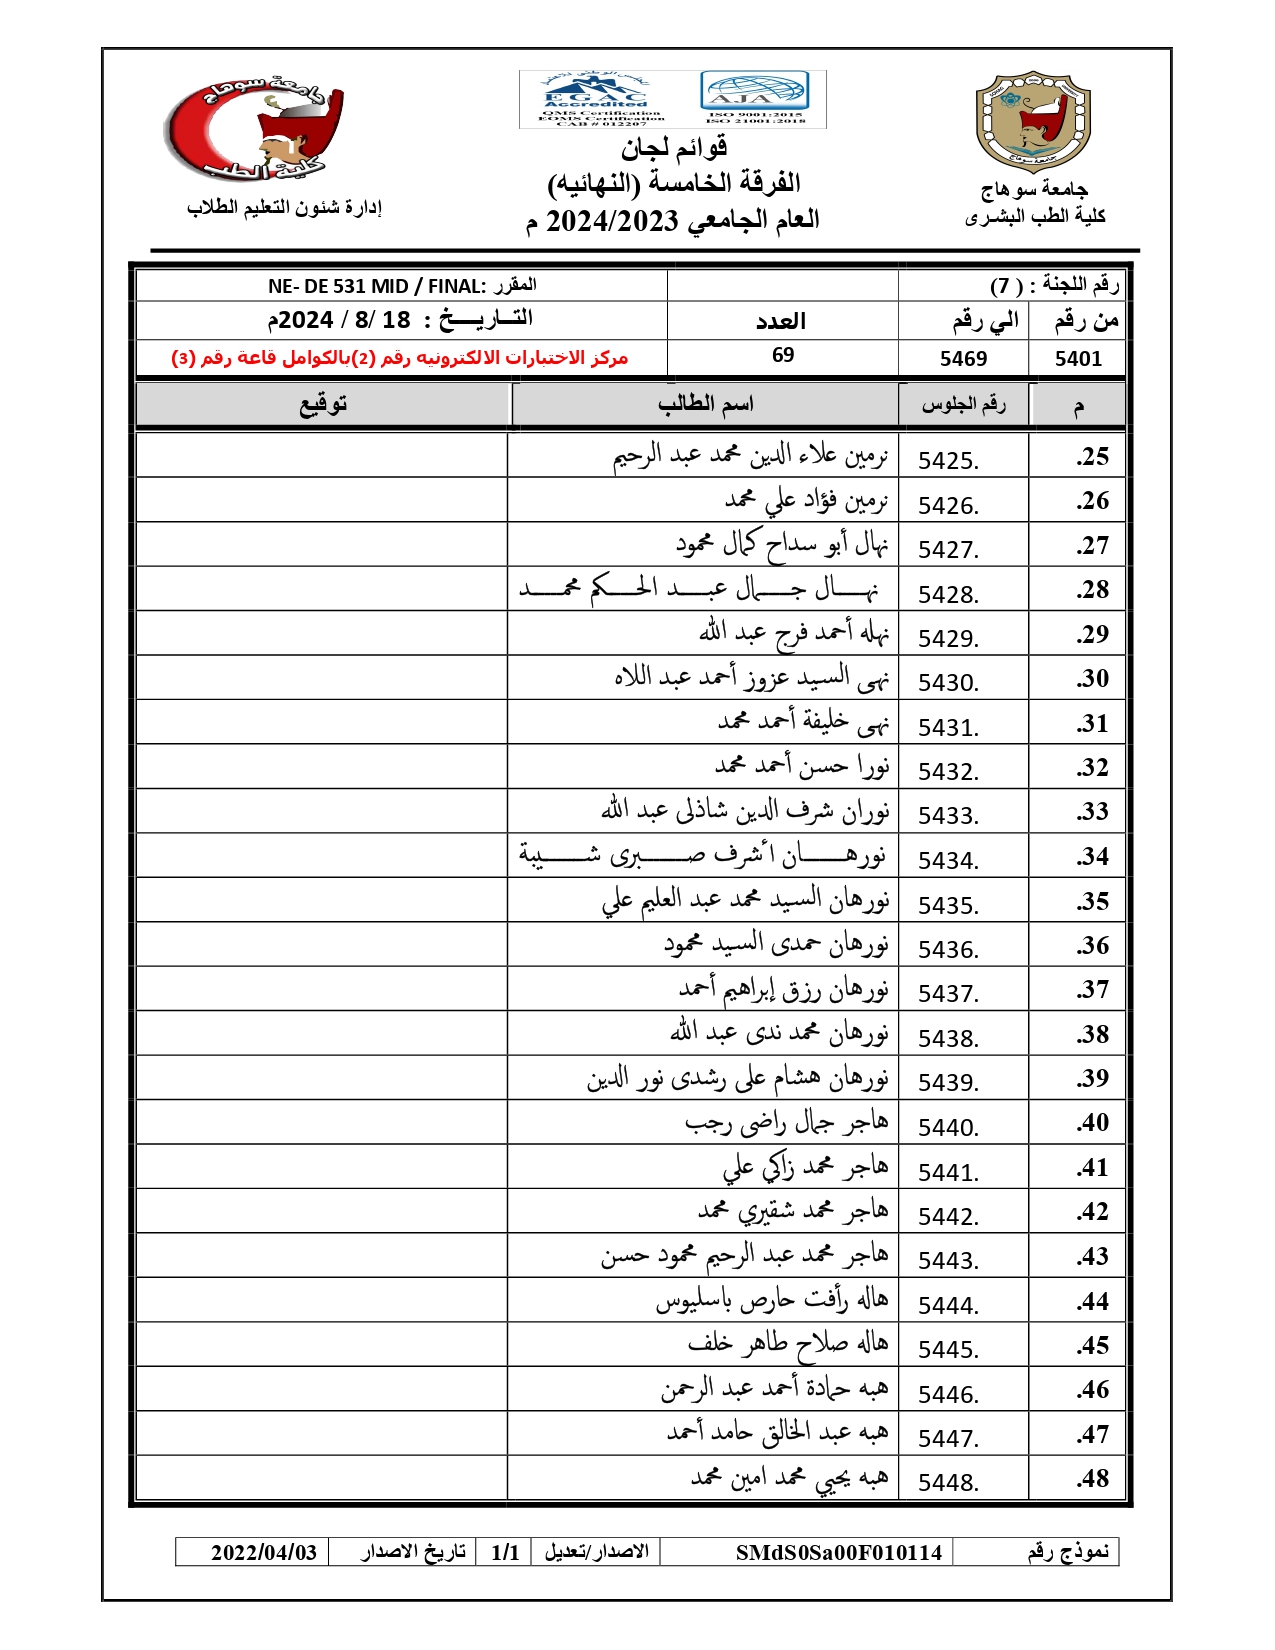 جامعة سوهاج
كلية الطب
إدارة شئون التعليم الطلاب
EGAC
Accredited
QMS Certification
EOMS Certification
CAB # 012207
AJA
ISO 9001:2015
ISO 21001:2018
قوائم لجان
الفرقة الخامسة (النهائيه)
العام الجامعي 2024/2023 م
جامعة سوهاج
جامعة سوهاج
كلية الطب البشرى
رقم اللجنة : ( 7) المقرر :NE- DE 531 MID / FINAL
من رقم الي رقم العدد التــاريــــخ : 18 /8 / 2024م
5401 5469 69 مركز الاختبارات الالكترونيه رقم (2)بالكوامل قاعة رقم (3)
م رقم الجلوس اسم الطالب توقيع
25. 5425. نرمين علاء الدين محمد عبد الرحيم
26. 5426. نرمين فؤاد علي محمد
27. 5427. نهال أبو سداح كمال محمود
28. 5428. نهـــال جـــمال عبـــد الحـــكم محمـــد
29. 5429. نهله أحمد فرج عبد الله
30. 5430. نهى السيد عزوز أحمد عبد اللاه
31. 5431. نهى خليفة أحمد محمد
32. 5432. نورا حسن أحمد محمد
33. 5433. نوران شرف الدين شاذلى عبد الله
34. 5434. نورهـــــان أشرف صـــــبرى شـــــيبة
35. 5435. نورهان السيد محمد عبد العليم علي
36. 5436. نورهان حمدى السيد محمود
37. 5437. نورهان رزق إبراهيم أحمد
38. 5438. نورهان محمد ندى عبد الله
39. 5439. نورهان هشام على رشدى نور الدين
40. 5440. هاجر جمال راضى رجب
41. 5441. هاجر محمد زاكي علي
42. 5442. هاجر محمد شقيري محمد
43. 5443. هاجر محمد عبد الرحيم محمود حسن
44. 5444. هاله رأفت حارص باسليوس
45. 5445. هاله صلاح طاهر خلف
46. 5446. هبه حمادة أحمد عبد الرحمن
47. 5447. هبه عبد الخالق حامد أحمد
48. 5448. هبه يحيي محمد امين محمد
نموذج رقم SMdS0Sa00F010114 الاصدار/تعديل 1/1 تاريخ الاصدار 2022/04/03